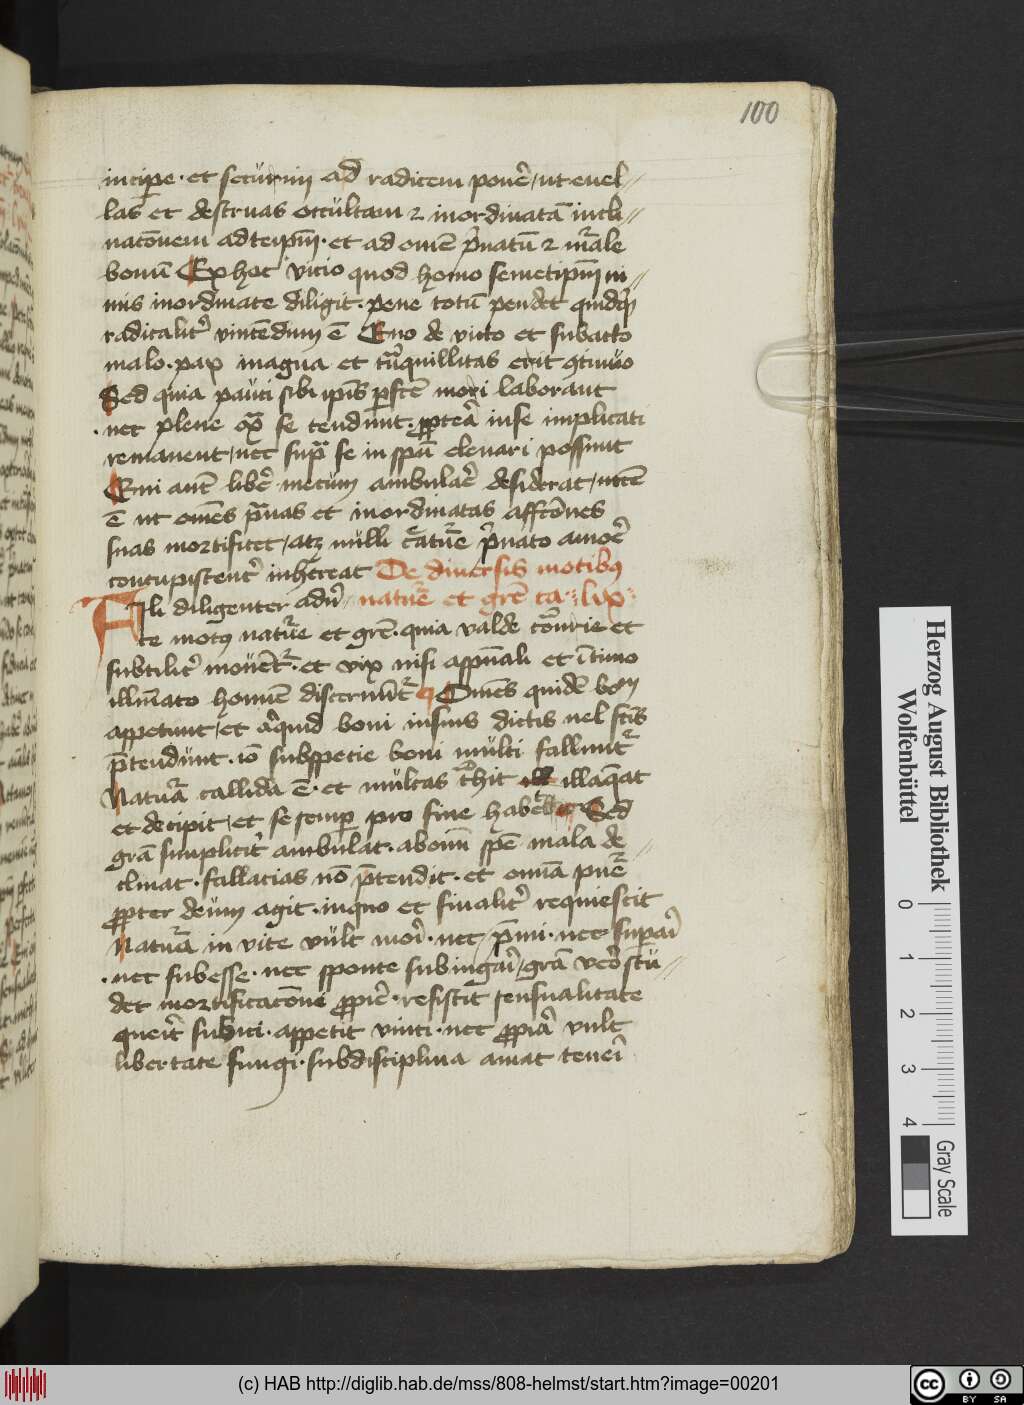 100
incipe · et securim ad radicem ponē / ut euel //
las et destruas occultam ⁊ inordinatā incli //
natōnem ad teipm̄ · et ad omē p̄uatū ⁊ mr̄ale
bonū Ex hoc vicio quod homo semetipm̄ ni //
mis inordinate diligit · pene totū pendet quidq̄
radicalit᷑ vincēdum ē Quo de victo et subacto
malo · pax magna et tr̄quillitas erit ꝯtinuo
Sed quia pauci sibi ipīs pfcē mori laborant
· nec plene ex͞ se tendunt · ꝓpteā in se implicati
remanent / nec sup̄ se in spū eleuari possunt
Qui autē libē mecum ambulāe desiderat / necē
ē ut omēs p̄uas et inordinatas affcōnes
suas mortificet / atqꝫ nulli c̄atūe p̄uato amoē
concupiscent᷑ inhereat De diuersis motibꝰ
Fili diligenter adū // natuē et grē ca · liv ·
te motꝰ natūe et grē · quia valde cōtrarie et
subtilit᷑ mouēt᷑ · et vix nisi a sp̄uali et ītimo
illu͞iato homiē discernūt᷑ Om̄es quidē bon
appetunt / et aliquid boni in suis dictis uel fc̄is
p̄tendunt · iō sub specie boni multi fallunt᷑
Natur̄a callida ē · et multas t͛hit illaq̄at
et decipit / et se semper pro fine habet Sed
grā simplicit᷑ ambulat · ab omī spē mala de //
clinat · fallacias nō p̄tendit · et omīa pure
ꝓpter deum agit · in quo et finalit᷑ requiescit
Natura in vite vult mori · nec p̄mi · nec supaī
· nec subesse · nec sponte subiugaī / grā vero stu //
det mortificatōni ꝓpie · resistit sensualitate
querit subici · appetit vinci · nec ꝓpiā vult
libertate fungi · sub disciplina amat teneī
Herzog August Bibliothek
Wolfenbüttel
0 1 2 3 4
Gray Scale
(c) HAB http://diglib.hab.de/mss/808-helmst/start.htm?image=00201
cc BY SA